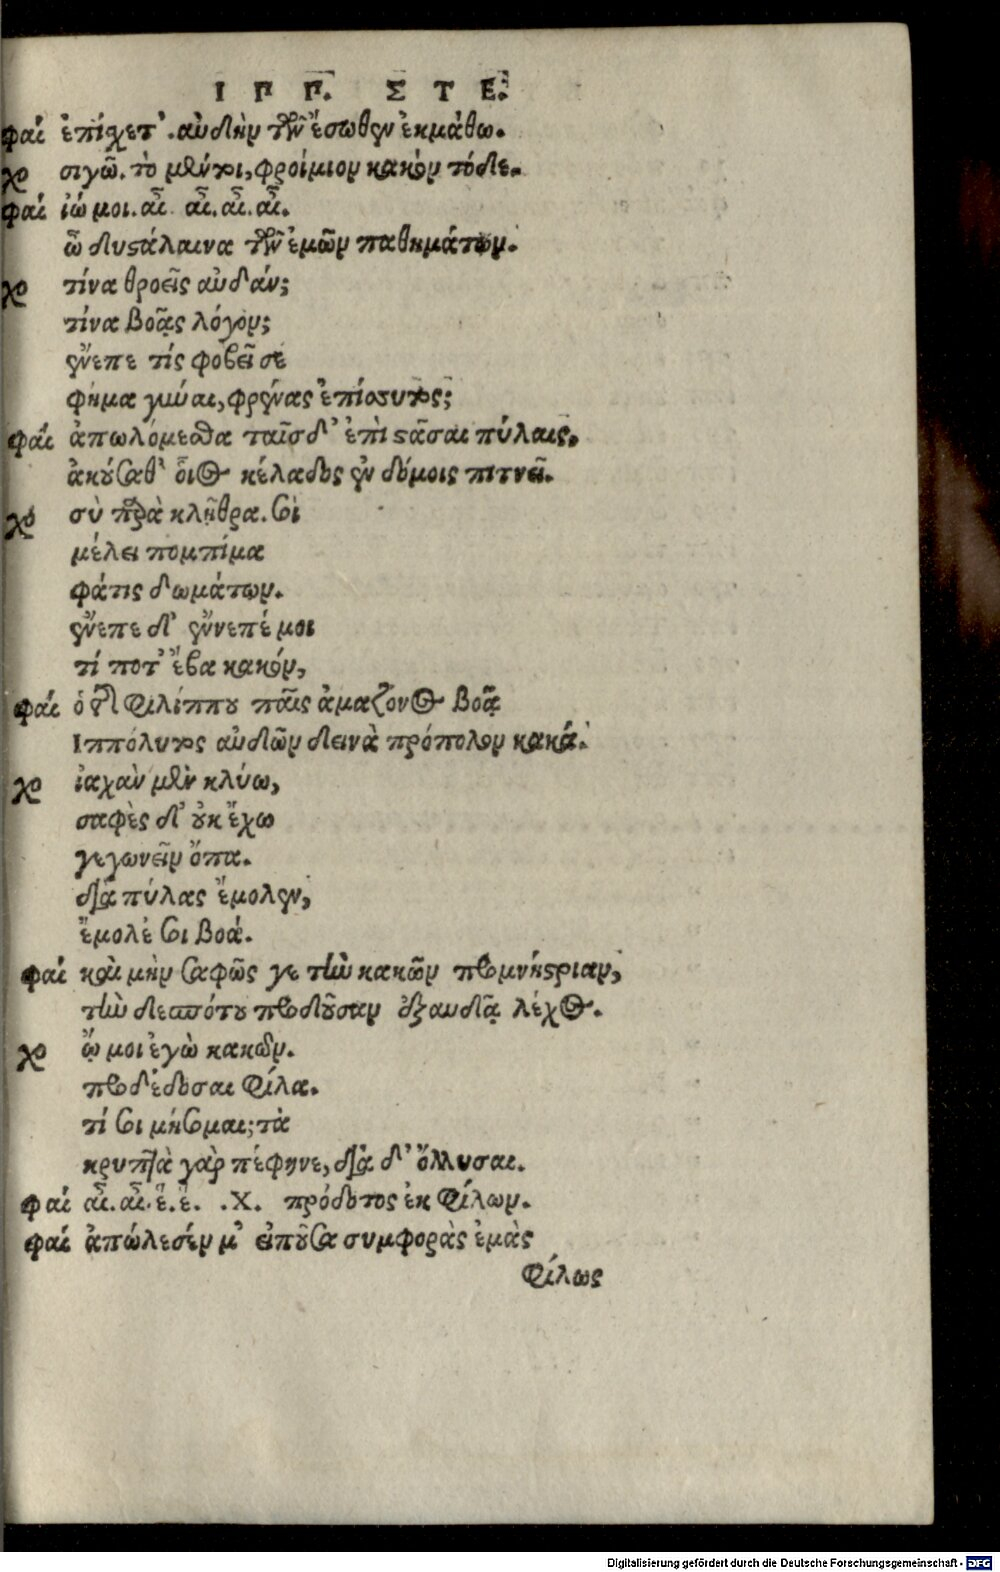 ΙΠΠ. ΣΤΕ.
φαί ἐπίχετ'. αὐδὴν τῶν ἔσωθεν ἐκμάθω.
χο σιγῶ. τὸ μέν τοι, φροίμιον κακὸν τόδε.
φαί ἰώ μοι. αἶ αἶ. αἶ. αἶ.
ὦ δυστάλαινα τῶν ἐμῶν παθημάτων.
χο τίνα θροεῖς αὐδάν;
τίνα βοᾷς λόγον;
ἔνεπε τίς φοβεῖ σε
φήμα γύναι, φρένας ἐπίσσυτος;
φαί ἀπωλόμεσθα ταῖσδ' ἐπὶ στᾶσαι πύλαις,
ἀκούσαθ' οἷος κέλαδος ἐν δόμοις πιτνεῖ.
χό σὺ παρὰ κλῇθρα. σοὶ
μέλει πομπίμα
φάτις δωμάτων.
ἔνεπε δ' ἔννεπέ μοι
τί ποτ' ἔβα κακόν,
φαί ὁ τῆς φιλίππου παῖς ἀμαζονος βοᾷ
Ιππόλυτος αὐδῶν δεινὰ πρόπολον κακά.
χο ἰαχὰν μὲν κλύω,
σαφὲς δ' οὐκ ἔχω
γεγωνεῖν ὅπα.
διὰ πύλας ἔμολεν,
ἔμολέ σοι βοά.
φαί καὶ μὴν σαφῶς γε τὴν κακῶν προμνήστριαν,
τὴν δεσπότου προδοῦσαν ἐξαυδᾷ λέχος.
χο ᾤ μοι ἐγὼ κακῶν.
προδέδοσαι φίλα.
τί σοι μήσομαι; τὰ
κρυπτὰ γὰρ πέφηνε, διὰ δ' ὄλλυσαι.
φαί αἶ. αἶ. ἒ. ἒ. .Χ. πρόδοτος ἐκ φίλων.
φαί ἀπώλεσέν μ' εἰποῦσα συμφορὰς ἐμὰς
φίλως
Digitalisierung gefördert durch die Deutsche Forschungsgemeinschaft - DFG